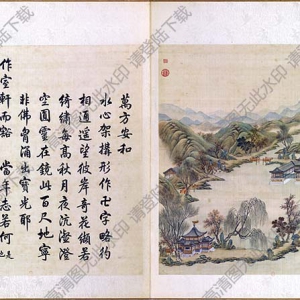 萬方安和
水心架構形作卍字略約
相通遥望彼岸奇花纈若
綺繡每高秋月夜沆瀣澄
空圓靈在鏡此百尺地寧
非佛胷涌出寶光耶
作室軒而豁 當年志若何
高清图无此水印 请登陆下载